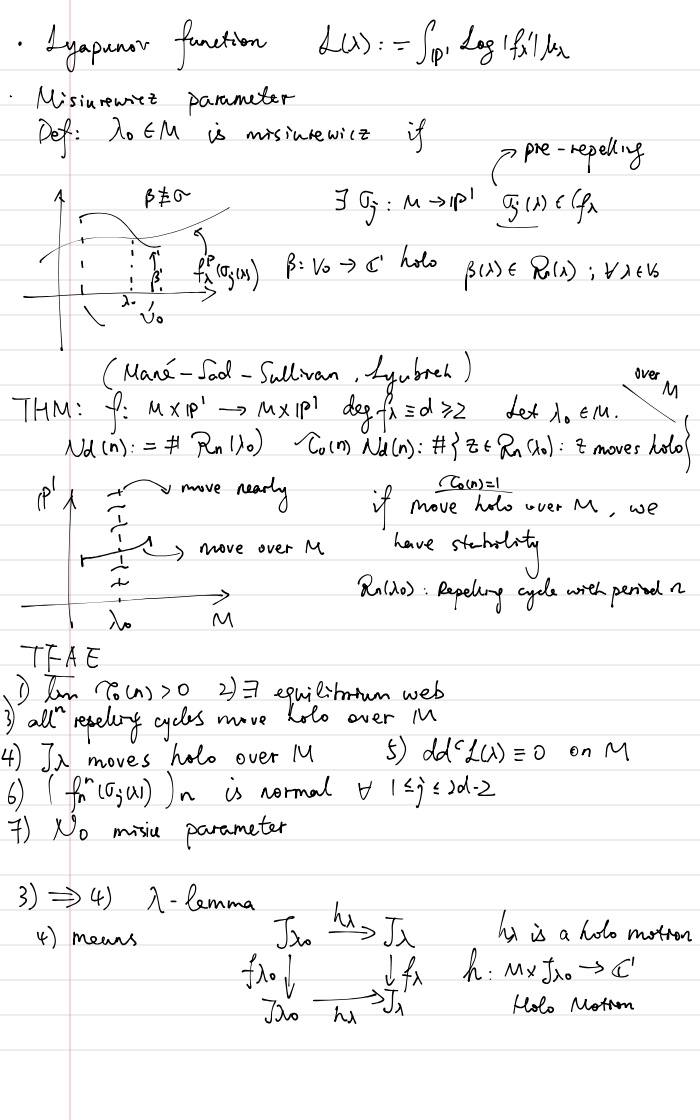 · Lyapunov function L(λ) := ∫_{ℙ¹} Log |f'_λ| μ_λ
· Misiurewicz parameter
Def: λ₀ ∈ M is misiurewicz if
pre-repelling
β ≢ σ
∃ σ_j : M → ℙ¹ σ_j(λ) ∈ C f_λ
f_λ^p(σ_j(λ)) β : V₀ → ℂ¹ holo β(λ) ∈ R(λ) ; ∀ λ ∈ V₀
β
λ₀ V₀
(Mané - Sad - Sullivan , Lyubich)
over M
THM: f : M × ℙ¹ → M × ℙ¹ deg f_λ ≡ d ≥ 2 Let λ₀ ∈ M.
Nd(n) := # R_n(λ₀) τ₀(n) Nd(n) : #{z ∈ R_n(λ₀) : z moves holo}
ℙ¹ move nearly if τ₀(n)=1
move holo over M, we
move over M have stability
R_n(λ₀) : Repelling cycle with period n
λ₀ M
TFAE
1) lim_n τ₀(n) > 0 2) ∃ equilibrium web
3) all repelling cycles move holo over M
4) J_λ moves holo over M 5) dd^c L(λ) ≡ 0 on M
6) (f_n^n(σ_j(λ)))_n is normal ∀ 1 ≤ j ≤ 2d-2
7) No misiu parameter
3) ⟹ 4) λ-lemma
4) means J_{λ₀} h_λ → J_λ h_λ is a holo motion
f_{λ₀} ↓ ↓ f_λ h : M × J_{λ₀} → ℂ¹
J_{λ₀} h_λ → J_λ Holo Motion